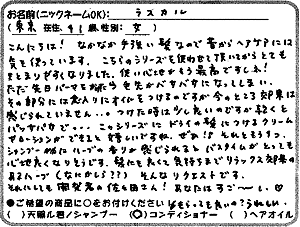 お名前(ニックネームOK): ラスカル
(東京 在住、41歳、性別: 女 )
こんにちは! なかなか手強い髪なので昔からヘアケアには
気を使っています。こちらのシリーズを使わせて頂いてからとても
まとまりやすくなりました。使い心地がもう最高ですしネ!
ただ先日パーマを掛け毛先がパサパサになってしまい、
その部分には念入りにオイルをつけるのですが今のところ効果は
感じられていません…。つけた時は少し良いのですが乾くと
パッサパサで…。このシリーズに どうか髪につけるクリーム
やローションができると嬉しいですね。ぜひ!! それともう1つ、
シャンプー時にハーブの香りが感じられるとバスタイムがとっても
心地良くなりそうです。髪にも良くて気持ちまでリラックス効果の
あるハーブ(なにかしら???) そんなリクエストです。
それにしても 開発者の佐々田さん! あなたはすご〜し。♡
●ご希望の商品に○をお付けください
( )天願ル君ノシャンプー (○)コンディショナー ( )ヘアオイル